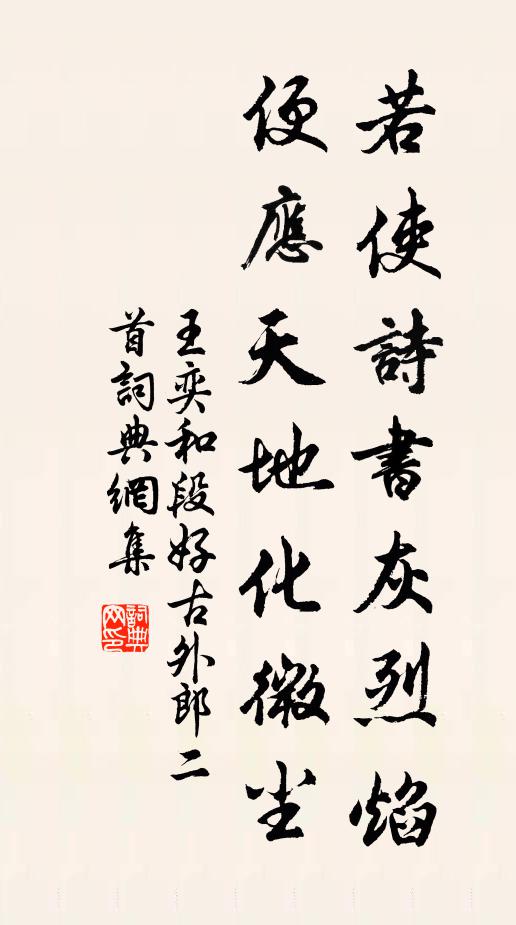 若使詩書灰烈焰
便應天地化微尘
王奕和段好古外郎二
首詞典網集
詞典网印